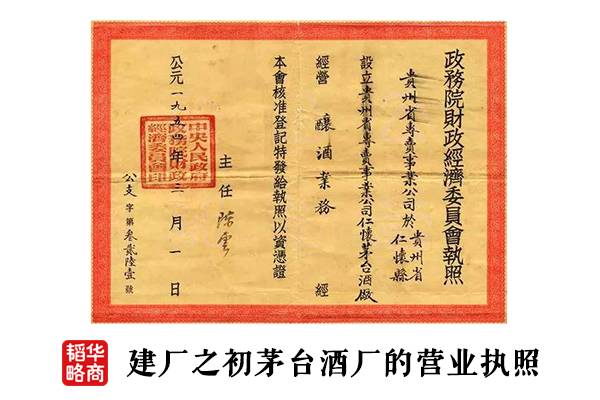 政務院財政經濟委員會執照
貴州省專賣事業公司於
貴州省
仁懷縣
設立貴州省專賣事業公司仁懷茅台酒廠
經營 釀酒業務 經
本會核准登記特發給執照以資憑證
主任 陳雲
公元一九五四年三月一日
中央人民政府
政務院財政
經濟委員會印
公支字第叁貳陸壹號
华商
韬略
建厂之初茅台酒厂的营业执照